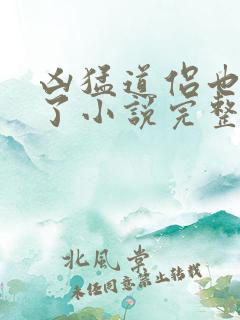 凶猛道侣也
了小说完整
北風棠
未经同意禁止转载